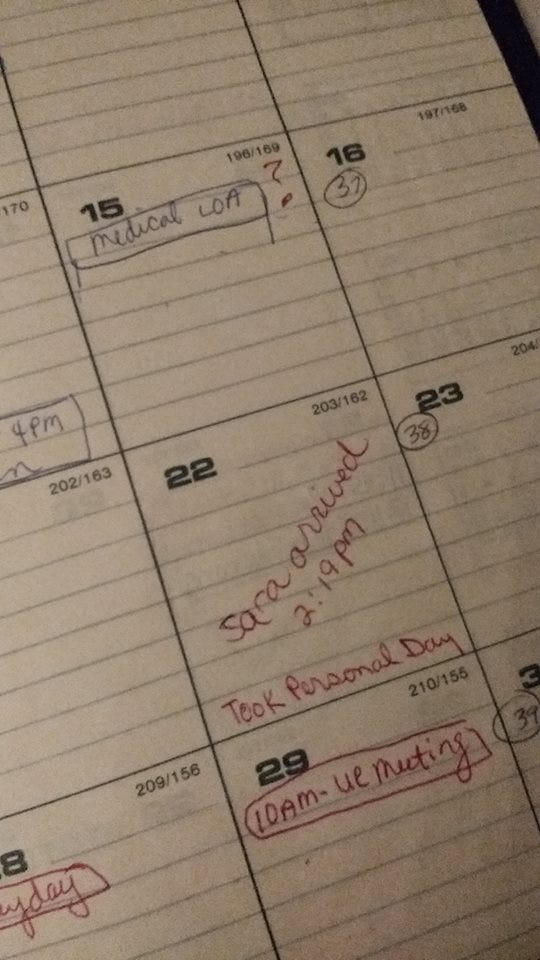 197/168
196/169
170
15
?
16
37
Medical LOA
204/
203/162
23
38
4pm
202/163
22
Sara arrived
2:19pm
Took Personal Day
210/155
3
39
209/156
29
10AM - UR Meeting
8
yday